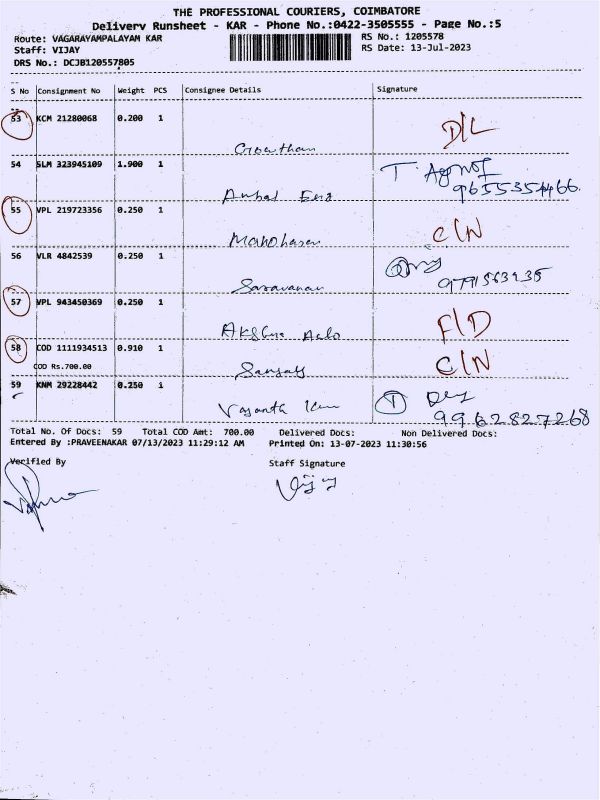 THE PROFESSIONAL COURIERS, COIMBATORE
Delivery Runsheet - KAR - Phone No.:0422-3505555 - Page No.:5
Route: VAGARAYAMPALAYAM KAR
RS No.: 1205578
Staff: VIJAY
RS Date: 13-Jul-2023
DRS No.: DCJB120557805
S No Consignment No Weight PCS Consignee Details Signature
53 KCM 21280068 0.200 1 D/L
Gowtham
54 SLM 323945109 1.900 1 T
Ambal Eng
55 VPL 219723356 0.250 1 C/N
Manoharan
56 VLR 4842539 0.250 1
Saravanan
57 VPL 943450369 0.250 1 F/D
58 COD 1111934513 0.910 1 Sanjay C/N
COD Rs.700.00
59 KNM 29228442 0.250 1
Vasanth
9962827268
Total No. Of Docs: 59 Total COD Amt: 700.00 Delivered Docs: Non Delivered Docs:
Entered By :PRAVEENAKAR 07/13/2023 11:29:12 AM Printed On: 13-07-2023 11:30:56
Verified By
Staff Signature
Vijay